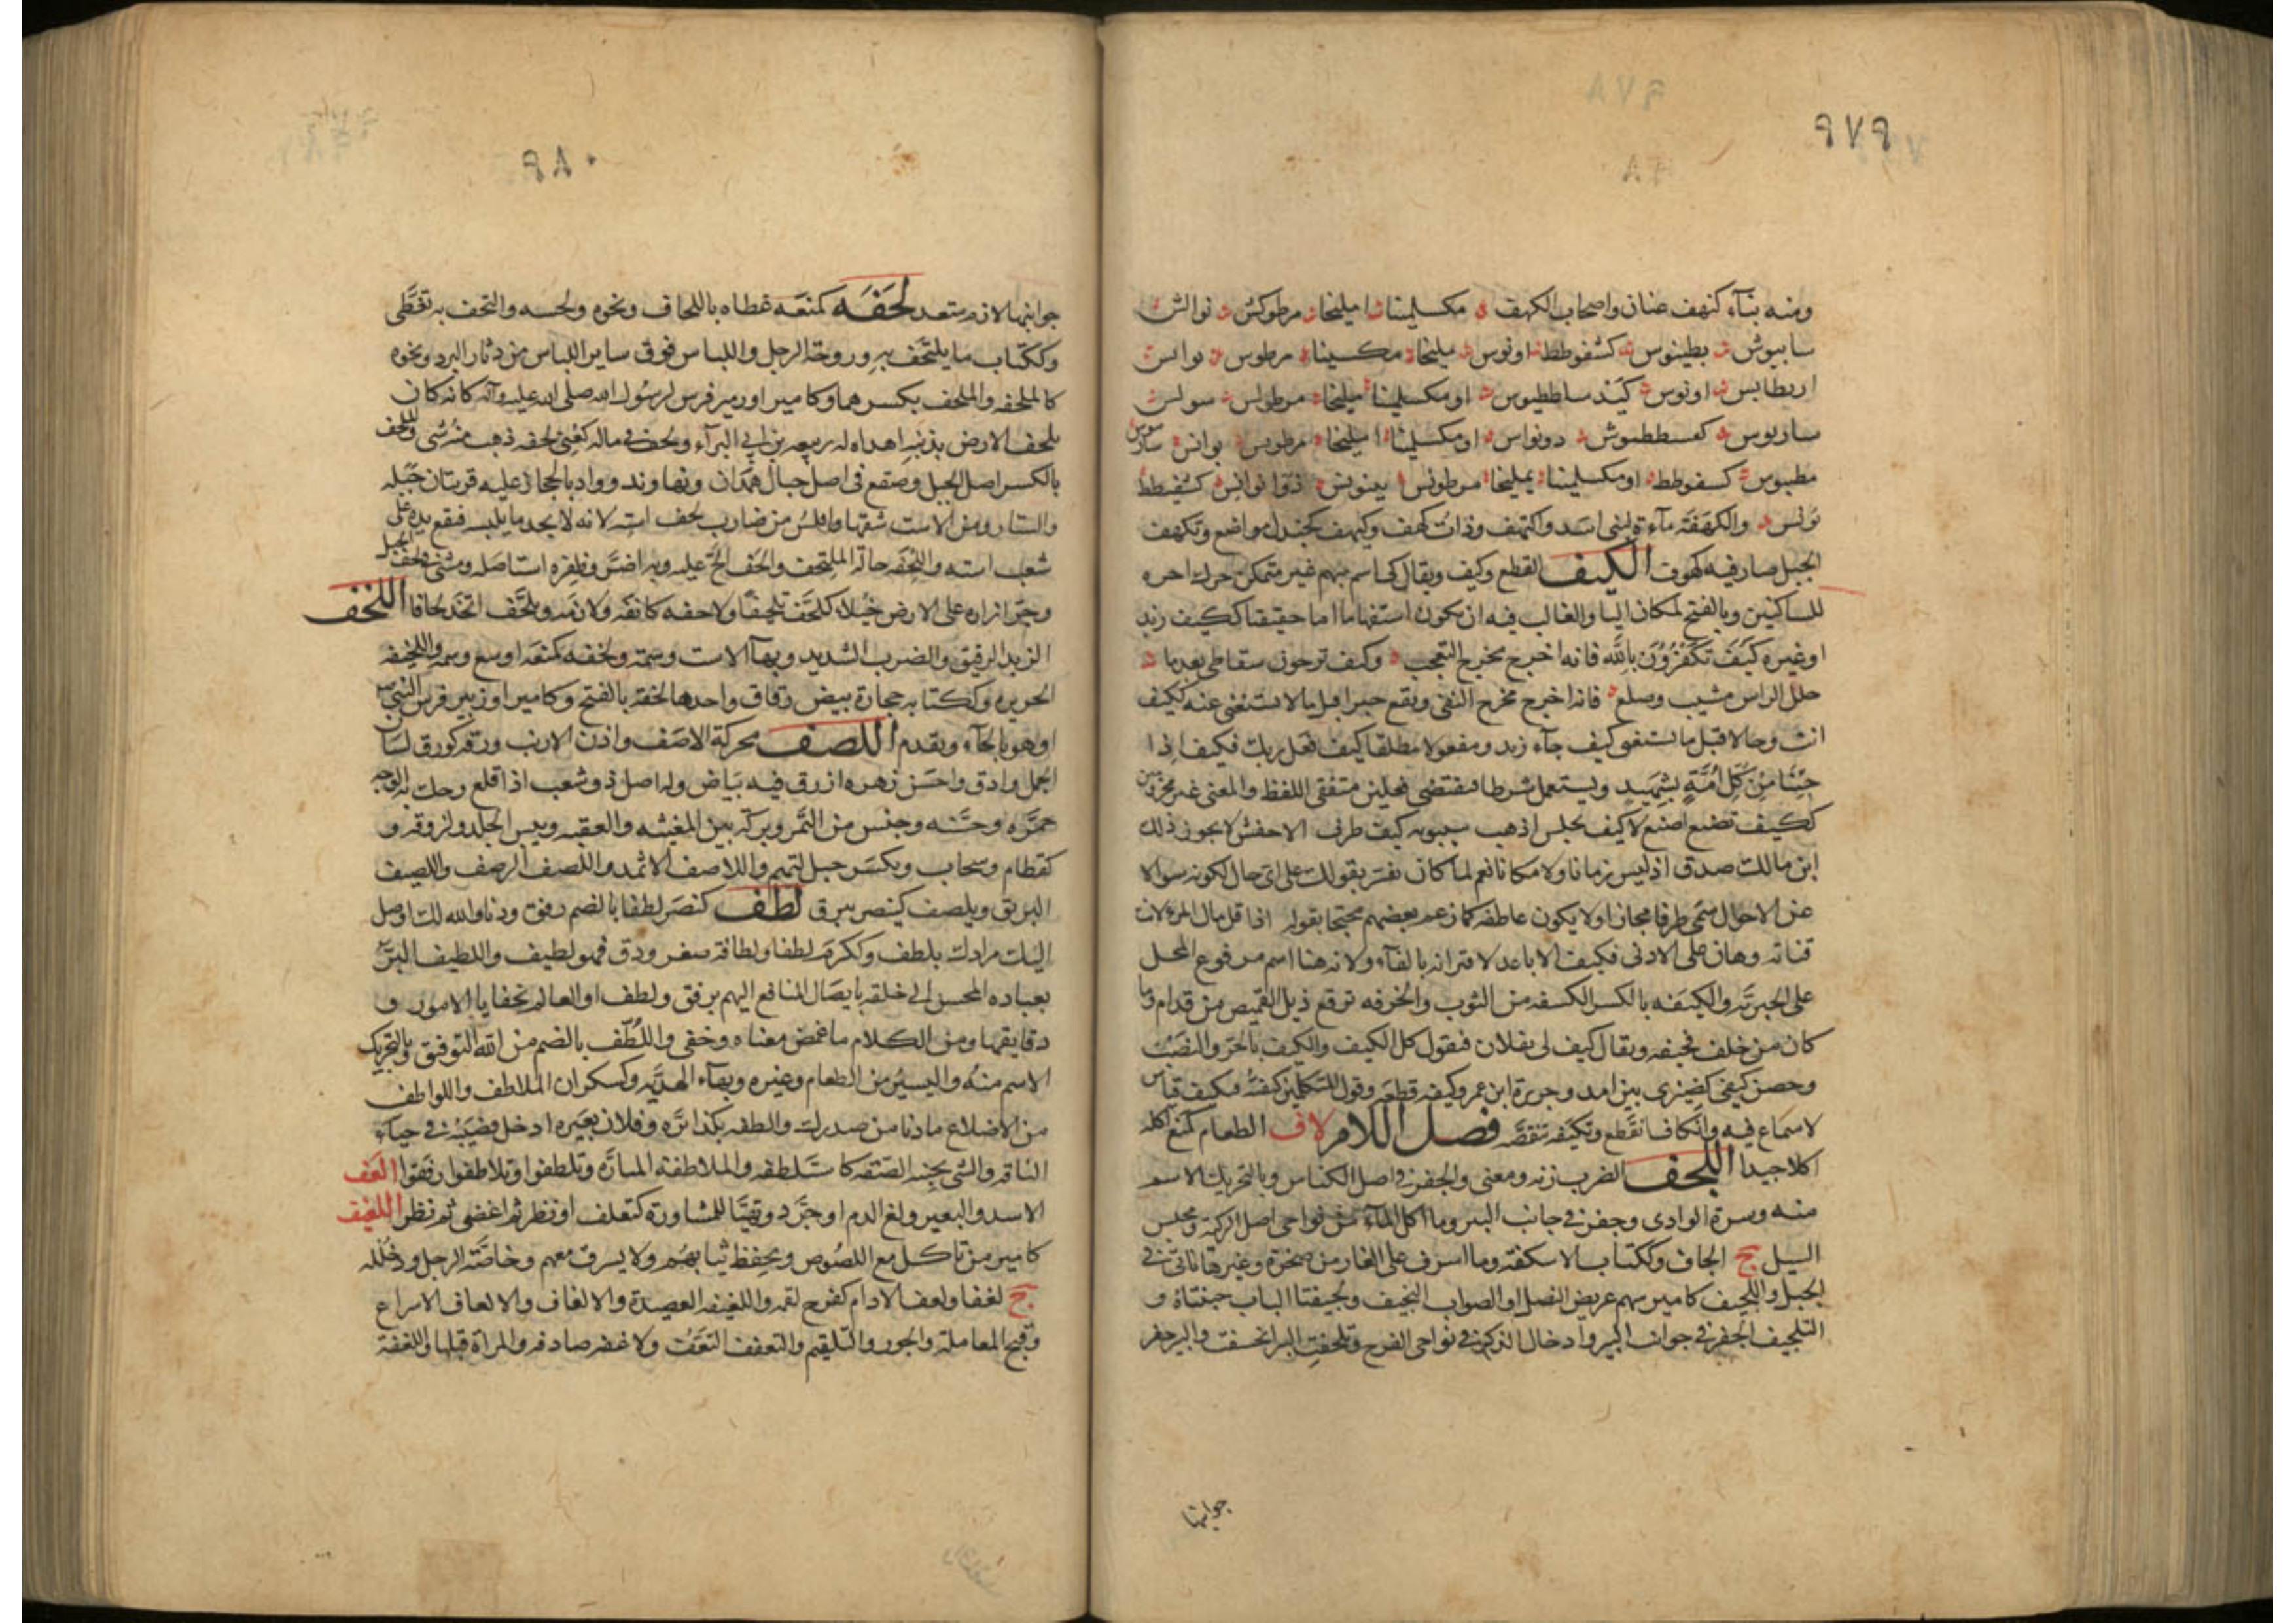 ٩٧٩
ومنه بنآء كنهف عنان واصحاب الكهف مكسلمينا امليخا مرطوكش نوالش
سابيوش بطينوس كشفوطط اونوس مليخا مكسينا مرطوس نوانس
اربطانس اونوس كيند ساططيوس او مكسلينا مليخا مرطولس سولس
ساربوس كفسططيوش دونواس او مكسلينا امليخا مرطونس يوانس
مطبيوس كسفوطط او مكسلمينا يمليخا مرطونس بينونس ذوانوانس كشفيطط
نونس والكهفة مآءة لبنى اسد واكتهف وذات كهف وكهف كجندل مواضع وتكهف
الجبل صار فيه كهوف الكيف القطع وكيف ويقال كى اسم مبهم غير متمكن حرك اخره
للساكنين وبالفتح لمكان اليا والغالب فيه ان يكون استفهاما اما حقيقيا ككيف زيد
اوغيره كيف تكفرون بالله فانه اخرج مخرج التعجب وكيف ترجون سقاطى بعد ما
جلل الراس مشيب وصلع فانه اخرج مخرج النفى ويقع خبرا قبل ما لا يستغنى عنه ككيف
انت وحالا قبل ما يستغنى كيف جآء زيد ومفعولا مطلقا كيف فعل ربك فكيف اذا
جئنا من كل امة بشهيد ويستعمل شرطا فيقتضى فعلين متفقى اللفظ والمعنى غير مجزومين
ككيف تصنع اصنع لا كيف تجلس اذهب سيبويه كيف ظرف الاخفش لا يجوز ذلك
ابن مالك صدق اذ ليس زمانا ولا مكانا نعم لما كان يفسر بقولك على اى حال لكونه سوالا
عن الاحوال سمى ظرفا مجازا ولا يكون عاطفه كما زعم بعضهم محتجا بقوله اذا قل مال المرء لانت
قناته وهان على الادنى فكيف الاباعد لاقترانه بالفآء ولانه هنا اسم مرفوع المحل
على الخبرية والكيفه بالكسر الكسفه من الثوب والخرقه ترقع ذيل القميص من قدام وما
كان من خلف فحيفه ويقال كيف لى بفلان فتقول كل الكيف والكيف بالجر والنصب
وحصن كيفى كضيزى بين امد وجزيرة ابن عمر وكيفه قطعه وقول المتكلمين كيفته فتكيف قياس
لا سماع فيه وانكاف انقطع وتكيفه تنقصه فصل اللام لاف الطعام كمنع اكله
اكلا جيدا اللجف الضرب زنه ومعنى والجفر فى اصل الكناس وبالتحريك الاسم
منه وسرة الوادى وحفر فى جانب البير وما اكل المآء من نواحى اصل الركية ومحبس
السيل ج الجاف وككتاب الاسكفه وما اشرف على الغار من صخرة وغيرها ناتى فى
الجبل واللجيف كامير سهم عريض النصل او الصواب النجيف ولجيفتا الباب جنبتاه و
التلجيف الحفر فى جوانب البير وادخال الذكر فى نواحى الفرج وتلجفت البير انخسفت والبير حفر
جوانبها
٩٨٠
جوانبها لازم متعد لحفه كمنعه غطاه باللحاف ونحوه ولحسه والتحف به تغطى
وككتاب ما يلتحف به وزوجة الرجل واللباس فوق ساير اللباس من دثار البرد ونحوه
كالملحفه والملحف بكسرهما وكامير او زبير فرس لرسول الله صلى الله عليه وآله كانه كان
يلحف الارض بذنبه اهداه له ربيعه بن ابى البرآء ولحف فى ماله كعنى لحفه ذهب منه شى واللحف
بالكسر اصل الجبل وصقع فى اصل جبال همدان ونهاوند وواد بالحجاز عليه قريتان جبله
والستار ومن الاست شقها وافلس من ضارب لحف استه لانه لا يجد ما يلبسه فيقع يده على
شعب استه واللحفه حالة الملتحف والحف الح عليه وبه اضر وظفره استاصله ومشى فى لحف الجبل
وجر ازاره على الارض خيلاء كلحف تلحيفا ولاحفه كانفه ولازمه وتلحف اتخذ لحافا اللخف
الزبد الرقيق والضرب الشديد وبهآ الاست وسمة ولخفه كمنعه اوسع وسمه واللخيفه
الخزيره وككتابه حجارة بيض رقاق واحدها لخفه بالفتح وكامير او زبير فرس النبى ص
او هو بالحآء وتقدم اللصف محركة الاصف واذن الارنب ورقه كورق لسان
الجمل وادق واحسن زهره ازرق فيه بياض وله اصل ذو شعب اذا قلع وحك به الوجه
حمره وحسنه وجنس من التمر وبركه بين المغيثه والعقبه ويبس الجلد ولزوقه و
كقطام وسحاب وبكسر جبل لتميم واللاصف الاثمد واللصف الرصف واللصيف
البريق ويلصف كينصر يبرق لطف كنصر لطفا بالضم رفق ودنا والله لك اوصل
اليك مرادك بلطف وككرم لطفا ولطافة صغر ودق فهو لطيف واللطيف البر
بعباده المحسن الى خلقه بايصال المنافع اليهم برفق ولطف او العالم بخفايا الامور و
دقايقها ومن الكلام ما غمض معناه وخفى واللطف بالضم من الله التوفيق وبالتحريك
الاسم منه واليسير من الطعام وغيره وبهآء الهديه وكسكران الملاطف واللواطف
من الاضلاع ما دنا من صدرك والطفه بكذا بره وفلان بعيره ادخل قضيبه فى حياء
الناقه والشى بجنبه الصقه كاستلطفه والملاطفة المبارة وتلطفوا وتلاطفوا رفقوا العف
الاسد والبعير ولغ الدم او حرد وتهيا للمساورة كتعلف او نظر ثم اغضى ثم نظر اللغيف
كامير من ياكل مع اللصوص ويحفظ ثيابهم ولا يسرق معهم وخاصة الرجل ودخلله
ج لغفا ولغف الادام كفرح لقمه واللغيفه العصيدة والالغاف والالعاف الاسراع
وقبح المعاملة والجور والتلقيم والتعفف التعفت ولاغفه صادقه والمراة قبلها واللغفة